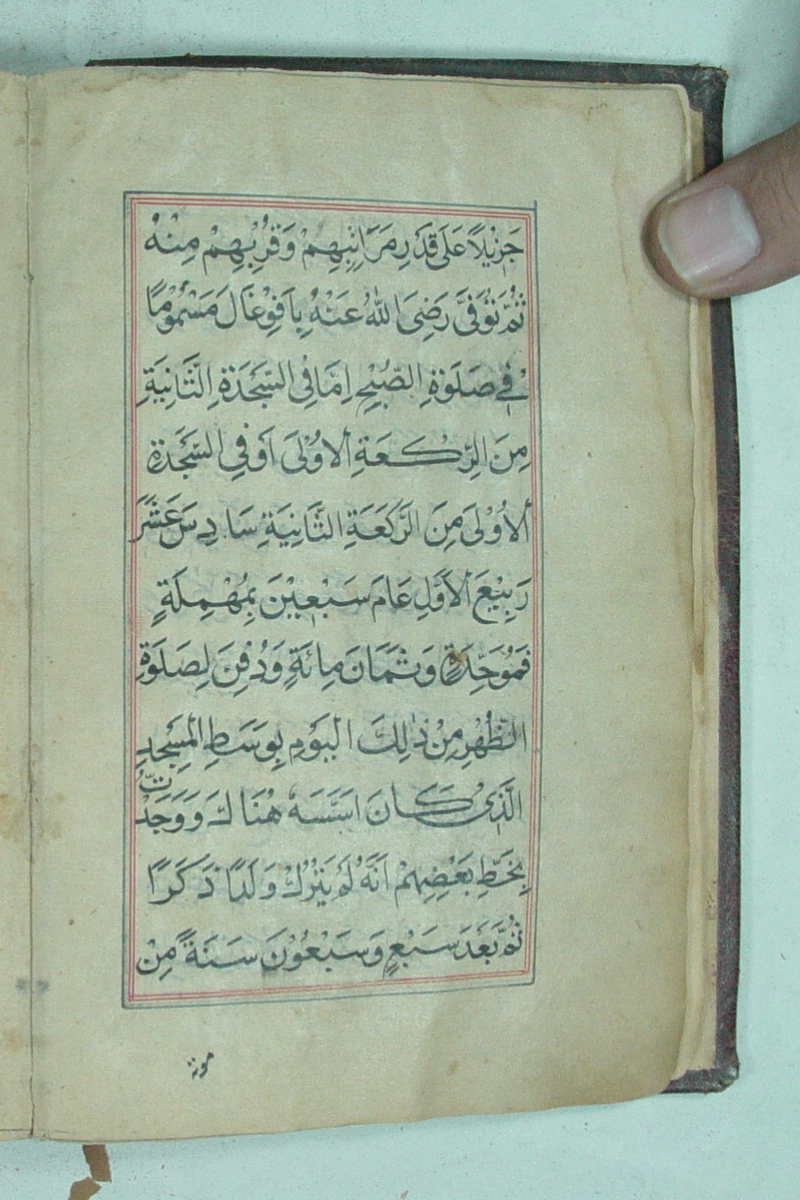 جَزِيْلًا عَلَى قَدْرِ مَرَاتِبِهِمْ وَقُرْبِهِمْ مِنْهُ
ثُمَّ تُوُفِّيَ رَضِيَ اللهُ عَنْهُ بِاَفُوْغَالَ مَسْمُوْمًا
فِي صَلَوةِ الصُّبْحِ اِمَّا فِى السَّجْدَةِ الثَّانِيَةِ
مِنَ الرَّكْعَةِ الاُوْلَى اَوْ فِي السَّجْدَةِ
الاُوْلَى مِنَ الرَّكْعَةِ الثَّانِيَةِ سَادِسَ عَشَرَ
رَبِيْعَ الاَوَّلِ عَامَ سَبْعِيْنَ بِمُهْمِلَةٍ
فَمُوَحِّدَةٍ وَثَمَانَ مِائَةٍ وَدُفِنَ لِصَلَوةِ
الظُّهْرِ مِنْ ذٰلِكَ الْيَوْمِ بِوَسَطِ الْمَسْجِدِ
الَّذِىْ كَانَ اَسَّسَهُ هُنَالِكَ وَوَجَدْتُ
بِخَطِّ بَعْضِهِمْ اَنَّهُ لَمْ يَتْرُكْ وَلَدًا ذَكَرًا
ثُمَّ بَعْدَ سَبْعٍ وَسَبْعُوْنَ سَنَةً مِنْ
موته